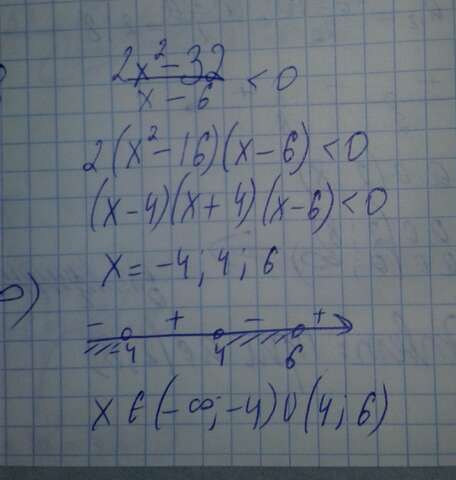 2x² - 32
x - 6 < 0
2(x² - 16)(x - 6) < 0
(x - 4)(x + 4)(x - 6) < 0
x = -4 ; 4 ; 6
- + - +
-4 4 6
x ∈ (-∞; -4) ∪ (4 ; 6)